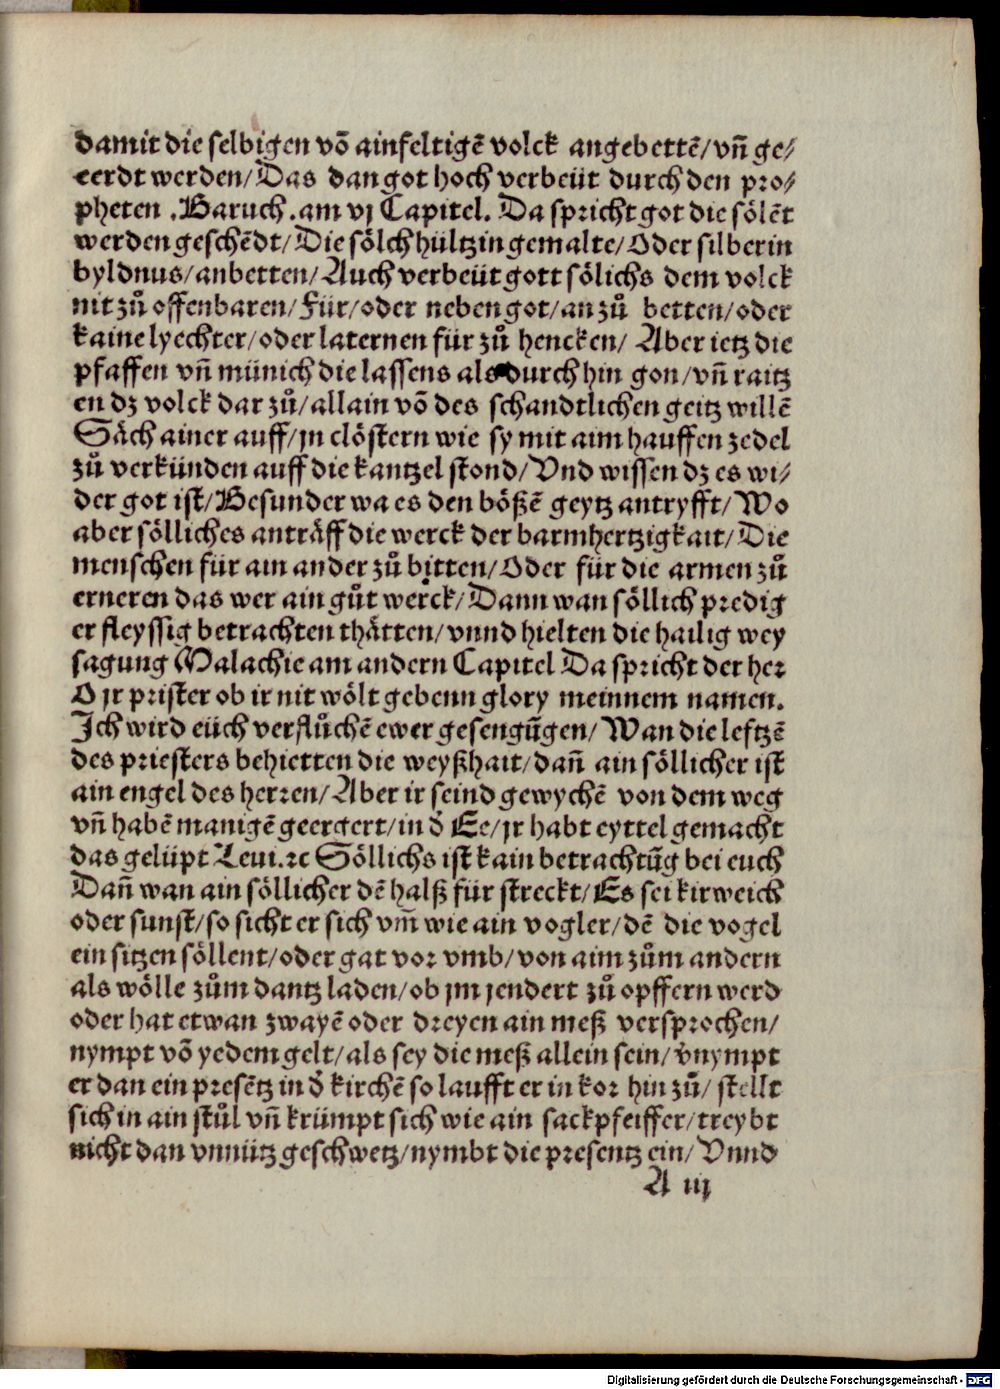 damit die selbigen võ ainfeltigẽ volck angebettẽ/vñ ge⸗
eerdt werden/Das dan got hoch verbeüt durch den pro⸗
pheten .Baruch .am vj Capitel. Da spricht got die sölẽt
werden geschẽdt/Die sölch hültzin gemalte/Oder silberin
byldnus/anbetten/Auch verbeüt gott sölichs dem volck
nit zů offenbaren/Für/oder neben got/an zů betten/oder
kaine lyechter/oder laternen für zů hencken/ Aber ietz die
pfaffen vñ münich die lassens als durch hin gon/vñ raitz
en dz volck dar zů/allain võ des schandtlichen geitz willẽ
Säch ainer auff/jn clöstern wie sy mit aim hauffen zedel
zů verkünden auff die kantzel stond/Vnd wissen dz es wi⸗
der got ist/Besunder wa es den bößẽ geytz antryfft/Wo
aber sölliches anträff die werck der barmhertzigkait/Die
menschen für ain ander zů bitten/Oder für die armen zů
erneren das wer ain gůt werck/Dann wan söllich predig
er fleyssig betrachten thätten/vnnd hielten die hailig wey
sagung Malachie am andern Capitel Da spricht der her
O jr prister ob ir nit wölt gebenn glory meinnem namen.
Ich wird eüch verflůchẽ ewer gesengũgen/Wan die leftzẽ
des priesters behietten die weyßhait/dañ ain söllicher ist
ain engel des herren/Aber ir seind gewychẽ von dem weg
vñ habẽ manigẽ geergert/in d̓ Ee/jr habt eyttel gemacht
das gelüpt Leui.ꝛc Söllichs ist kain betrachtũg bei euch
Dañ wan ain söllicher dẽ halß für streckt/Es sei kirweich
oder sunst/so sicht er sich vm̃ wie ain vogler/dẽ die vogel
ein sitzen söllent/oder gat vor vmb/von aim zům andern
als wölle zům dantz laden/ob jm jendert zů opffern werd
oder hat etwan zwayẽ oder dreyen ain meß versprochen/
nympt võ yedem gelt/als sey die meß allein sein/v̄nympt
er dan ein presẽtz in d̓ kirchẽ so laufft er in kor hin zů/ stellt
sich in ain stůl vñ krümpt sich wie ain sackpfeiffer/treybt
nicht dan vnnütz geschwetz/nymbt die presentz ein/Vnnd
A iij
Digitalisierung gefördert durch die Deutsche Forschungsgemeinschaft - DFG